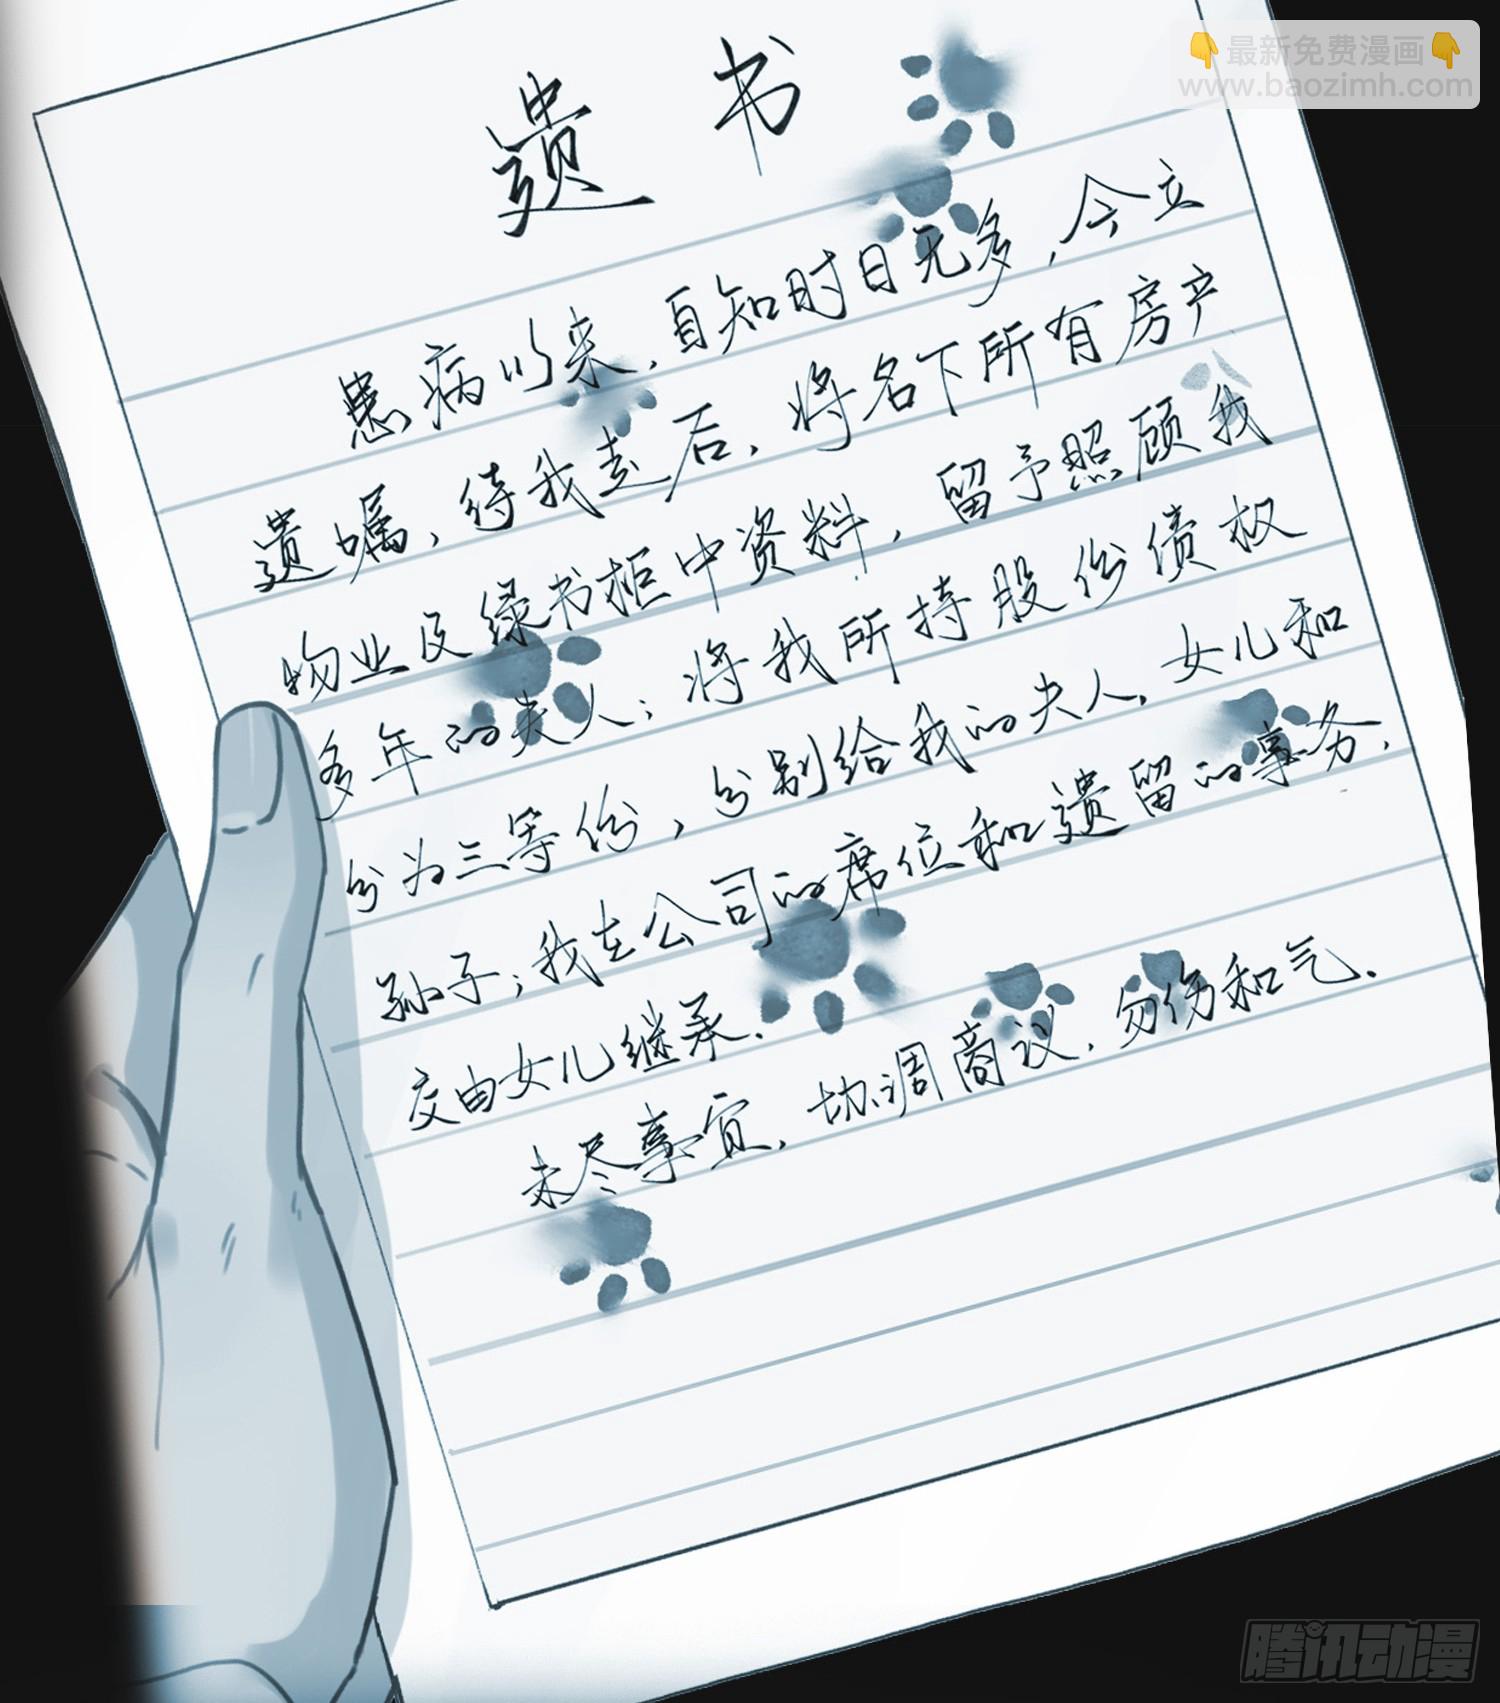 最新免费漫画
www.baozimh.com
遗书
患病以来,自知时日无多,今立
遗嘱,待我走后,将名下所有房产
物业及绿书柜中资料,留予照顾我
多年的夫人;将我所持股份债权
分为三等份,分别给我的夫人,女儿和
孙子;我在公司的席位和遗留的事务,
交由女儿继承.
未尽事宜,协调商议,勿伤和气.
腾讯动漫